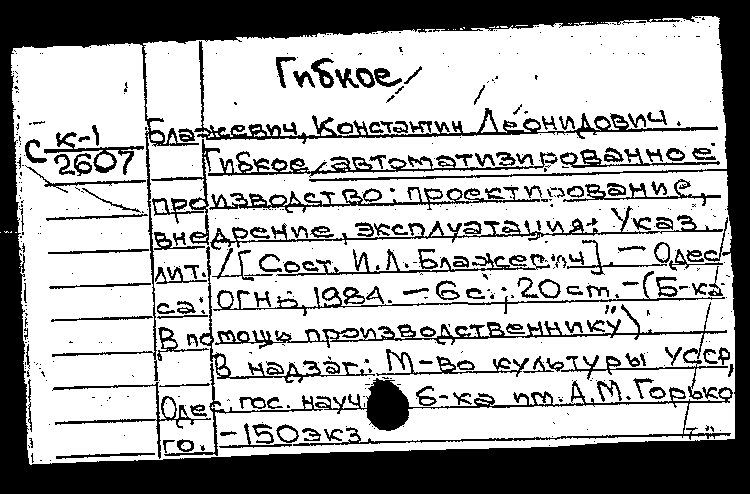 Гибкое
С К-1
2607
Блажевич, Константин Леонидович.
Гибкое автоматизированное
производство: проектирование,
внедрение, эксплуатация: Указ.
лит. / [Сост. И.Л. Блажевич]. — Одес-
са: ОГНБ, 1984. — 6 с.; 20 ст. — (Б-ка
"В помощь производственнику").
В надзаг.: М-во культуры УССР,
Одес. гос. науч. б-ка им. А.М. Горько
го. — 150 экз.